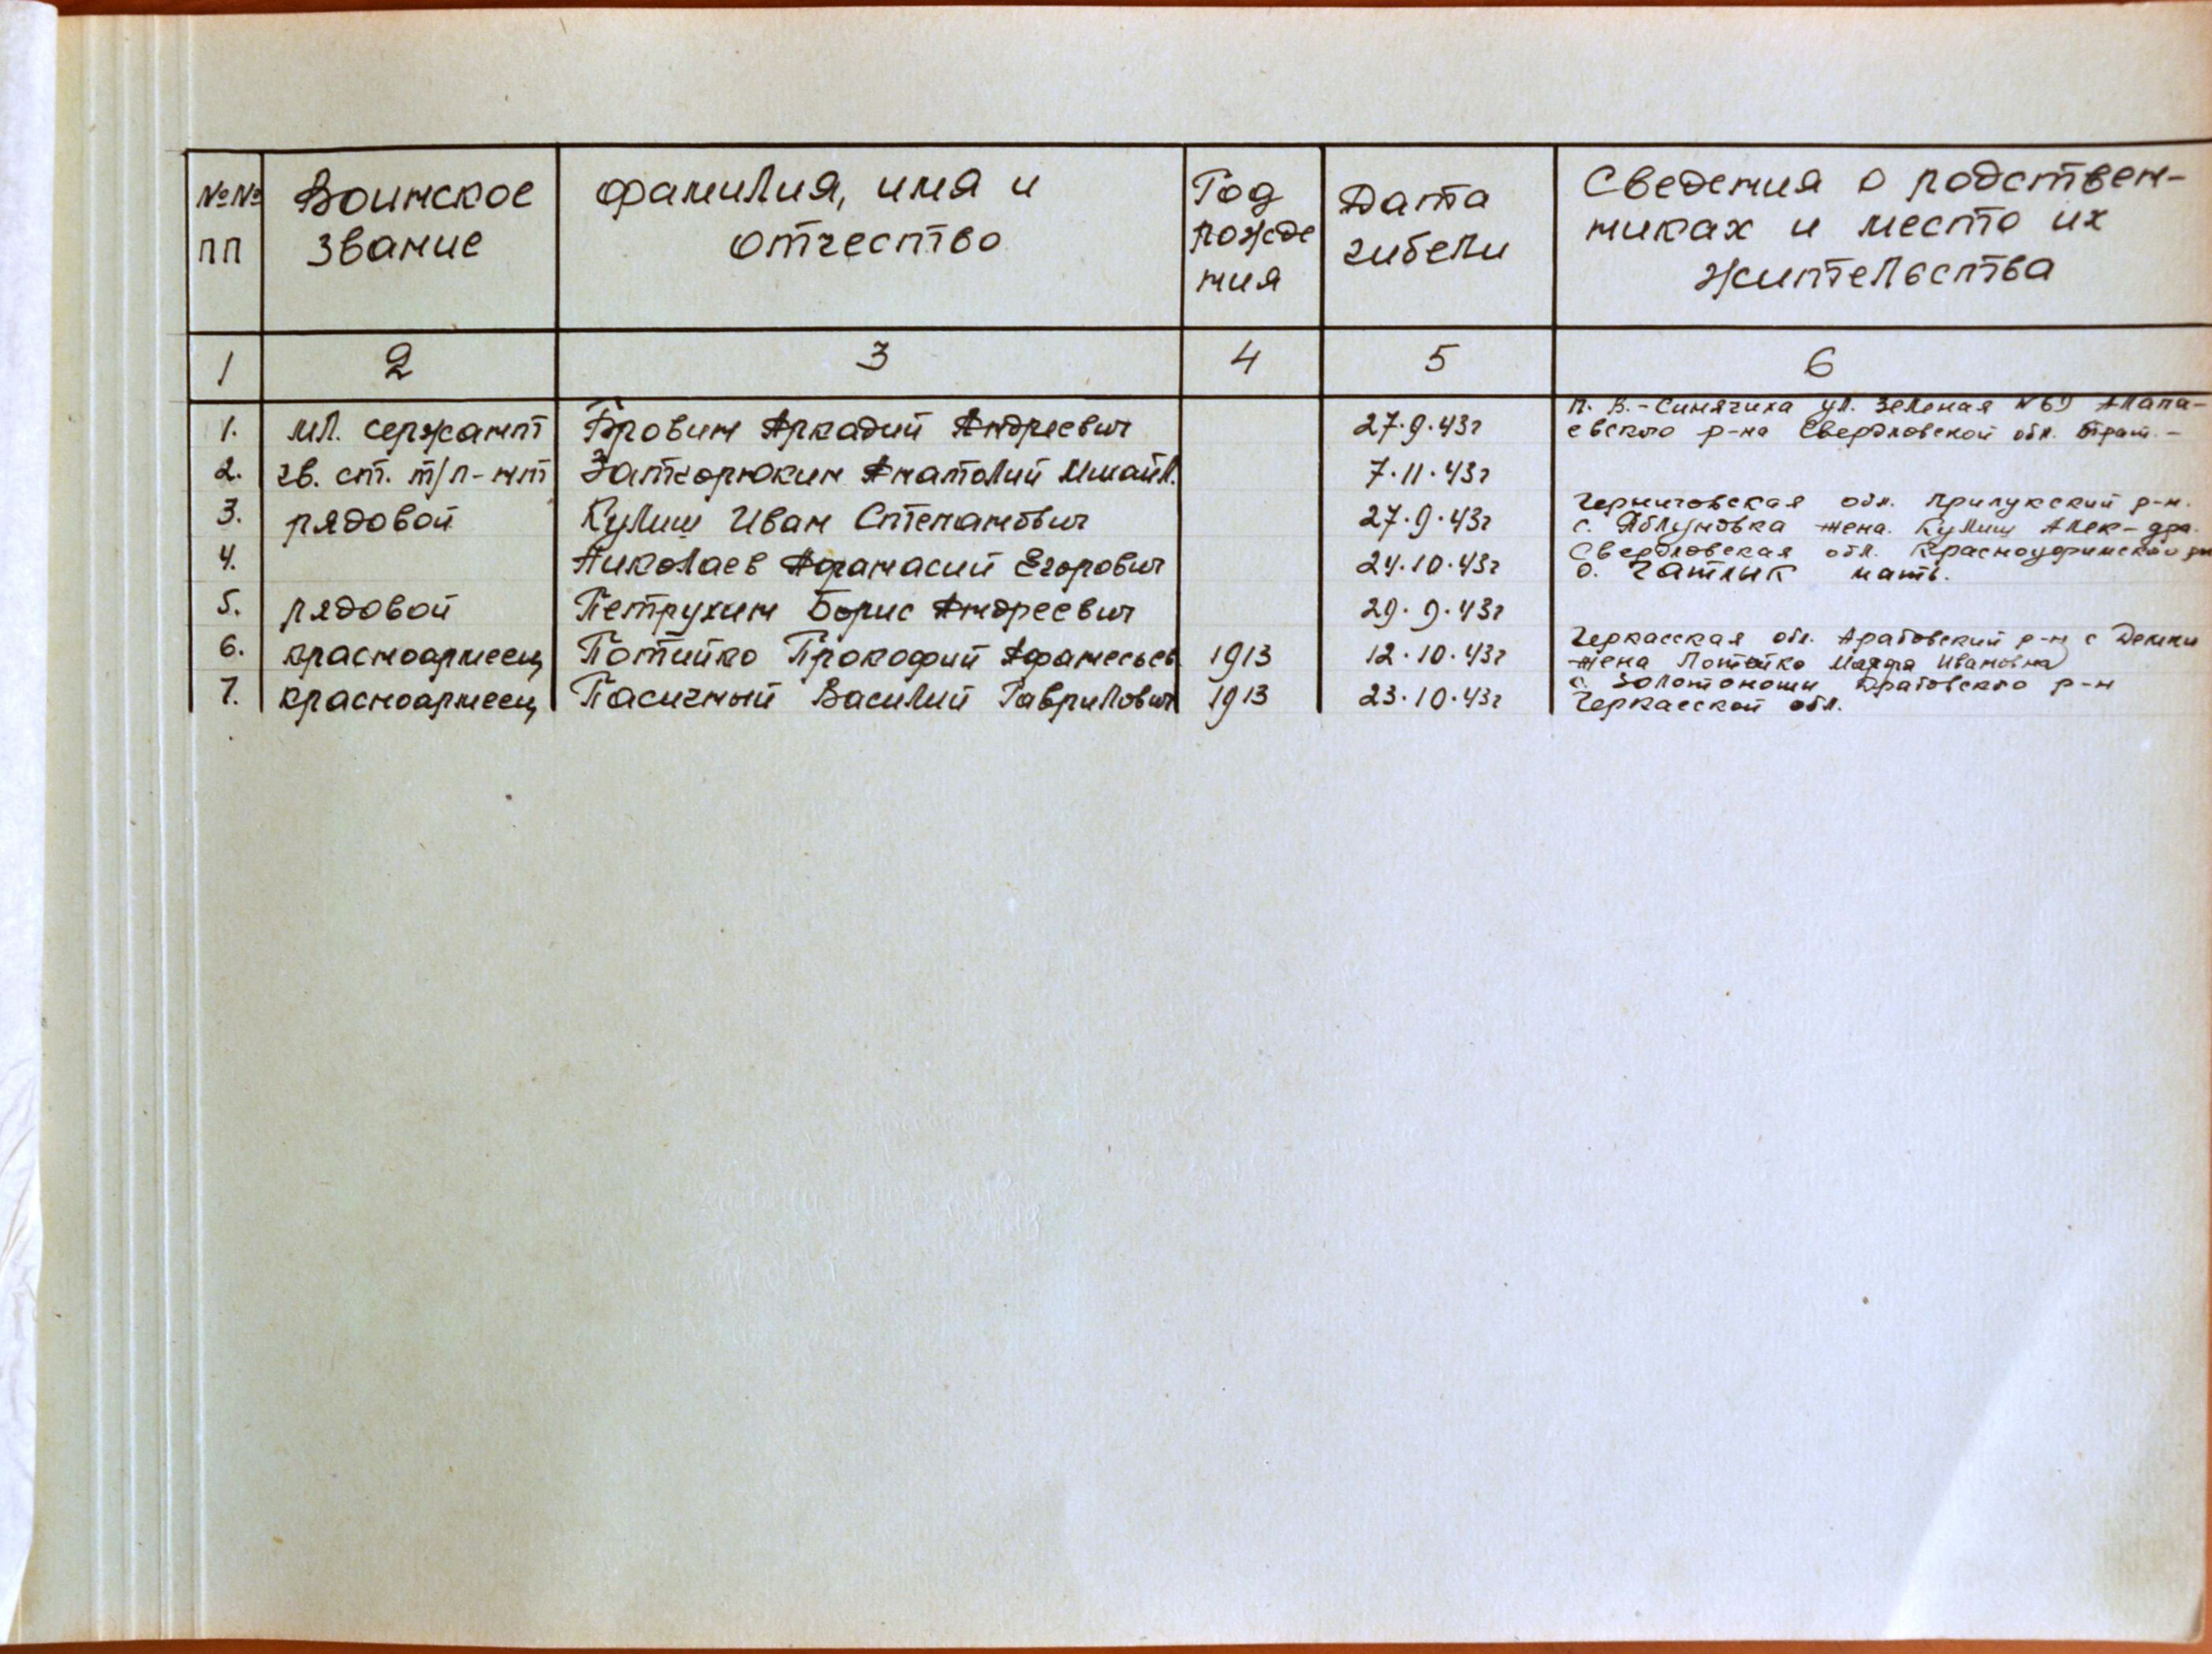 №№ пп Воинское звание фамилия, имя и отчество Год рожде ния Дата гибели Сведения о родствен- никах и место их жительства
1 2 3 4 5 6
п. В.-Синячиха ул. Зеленая №69 Алапа-
1. мл. сержант Бровин Аркадий Андреевич 27.9.43г евского р-на Свердловской обл.
2. гв. ст. т/л-нт Затхорюкин Анатолий Мишайл. 7.11.43г
Черниговская обл. Прилукский р-н.
3. рядовой Кулиш Иван Степанович 27.9.43г с. Яблуновка жена. Кулиш Алек-дра.
Свердловская обл. Красноуфимского
4. Николаев Афанасий Егорович 24.10.43г с. Чатлык мать.
5. рядовой Петрухин Борис Андреевич 29.9.43г
Черкасская обл. Арабовский р-н с Демки
6. красноармеец Потийко Прокофий Афанесьев 1913 12.10.43г жена Потейко Марфа Ивановна
с. Золотоноши Драбовского р-н
7. красноармеец Пасичный Василий Гаврилович 1913 23.10.43г Черкасской обл.